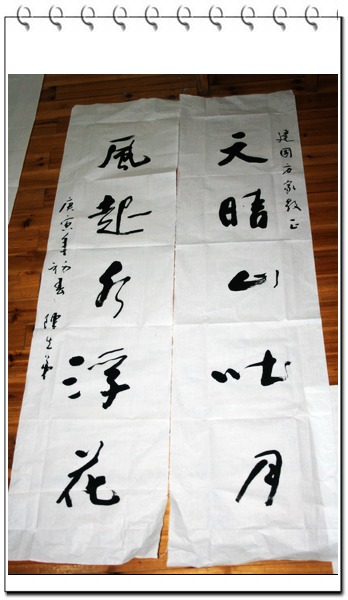 建國方家教正
天晴山吐月
風起水浮花
庚寅年初春